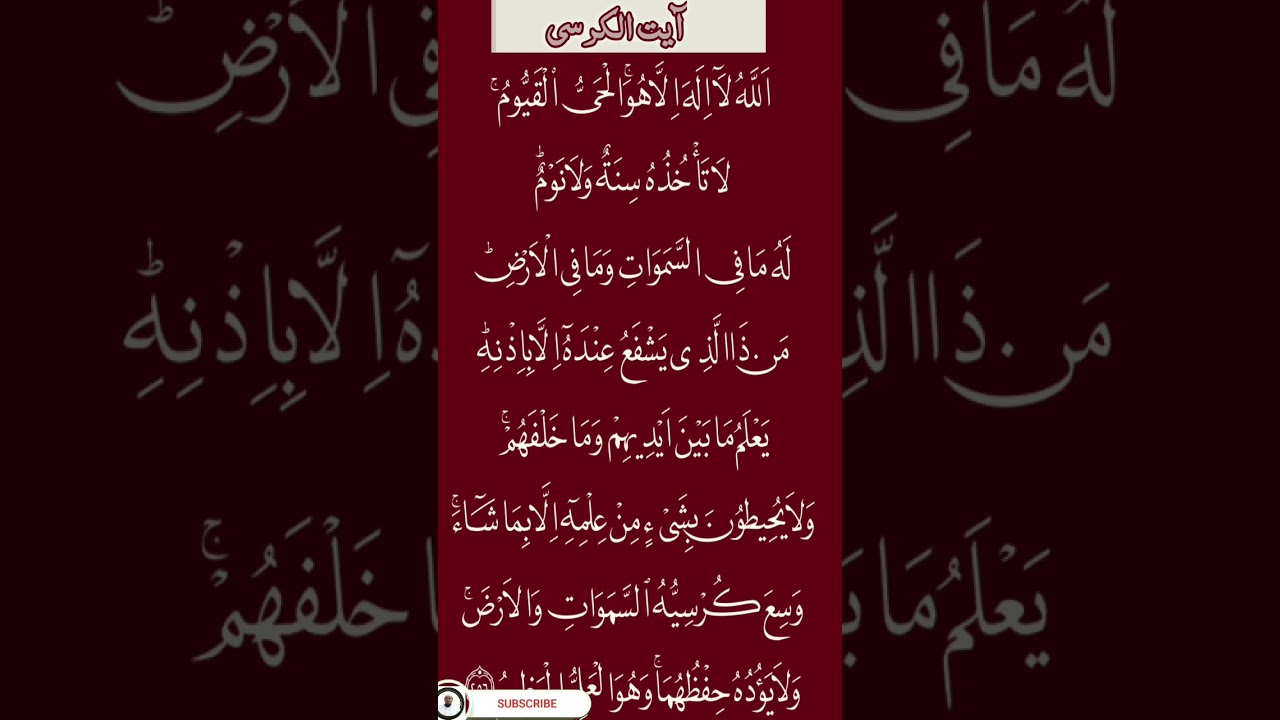 آیت الکرسی
اَللّٰهُ لَاۤ اِلٰهَ اِلَّا هُوَۚ اَلْحَیُّ الْقَیُّوْمُۚ
لَا تَاْخُذُهٗ سِنَةٌ وَّلَا نَوْمٌؕ
لَهٗ مَا فِی السَّمٰوَاتِ وَمَا فِی الْاَرْضِؕ
مَنْ ذَا الَّذِیْ یَشْفَعُ عِنْدَهٗۤ اِلَّا بِاِذْنِهٖؕ
یَعْلَمُ مَا بَیْنَ اَیْدِیْهِمْ وَمَا خَلْفَهُمْۚ
وَلَا یُحِیْطُوْنَ بِشَیْءٍ مِنْ عِلْمِهٖۤ اِلَّا بِمَا شَآءَۚ
وَسِعَ كُرْسِیُّهُ السَّمٰوَاتِ وَالْاَرْضَۚ
وَلَا یَؤُدُهٗ حِفْظُهُمَاۚ وَهُوَ الْعَلِیُّ الْعَظِیْمُ
SUBSCRIBE